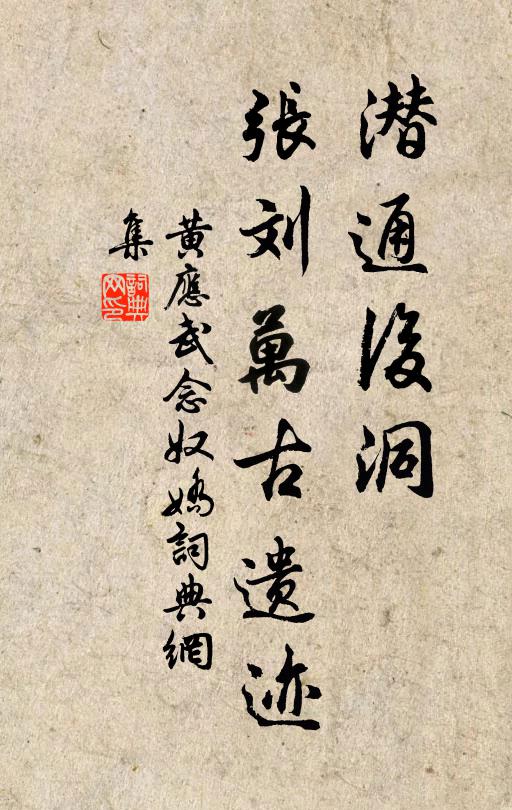 潜通後洞
張刘萬古遗迹
黄應武念奴嬌詞典網
集
詞典
网印